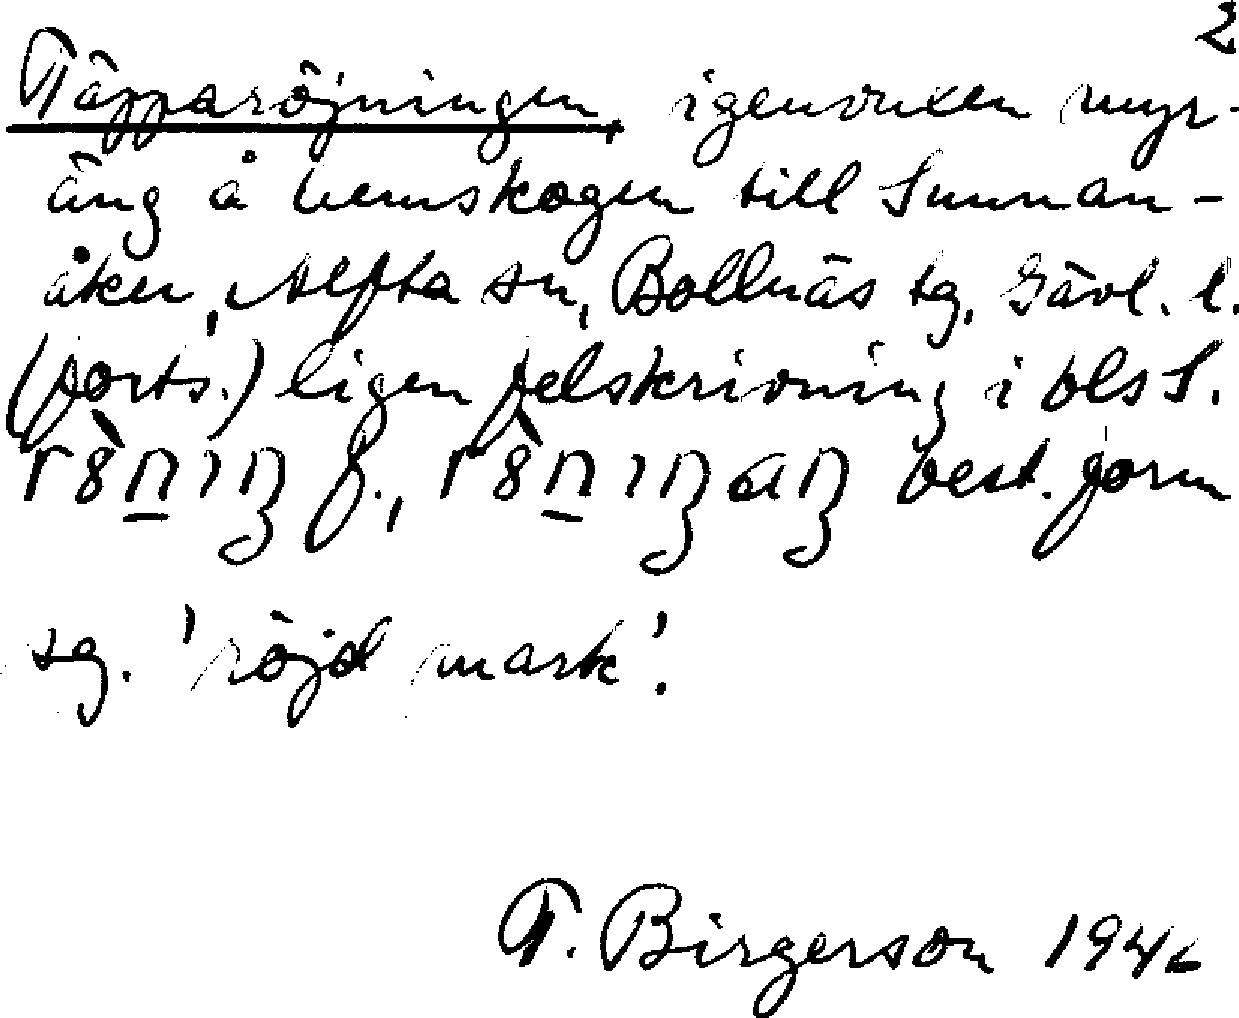 2
Täpparöjningen, igenvuxen myr-
äng å hemskogen till Sunnan-
åker, Alfta sn, Bollnäs tg, Gävl. l.
(forts.) ligen felskrivning i bls S.
f., best. form
sg. 'röjd mark'.
T. Birgerson 1946